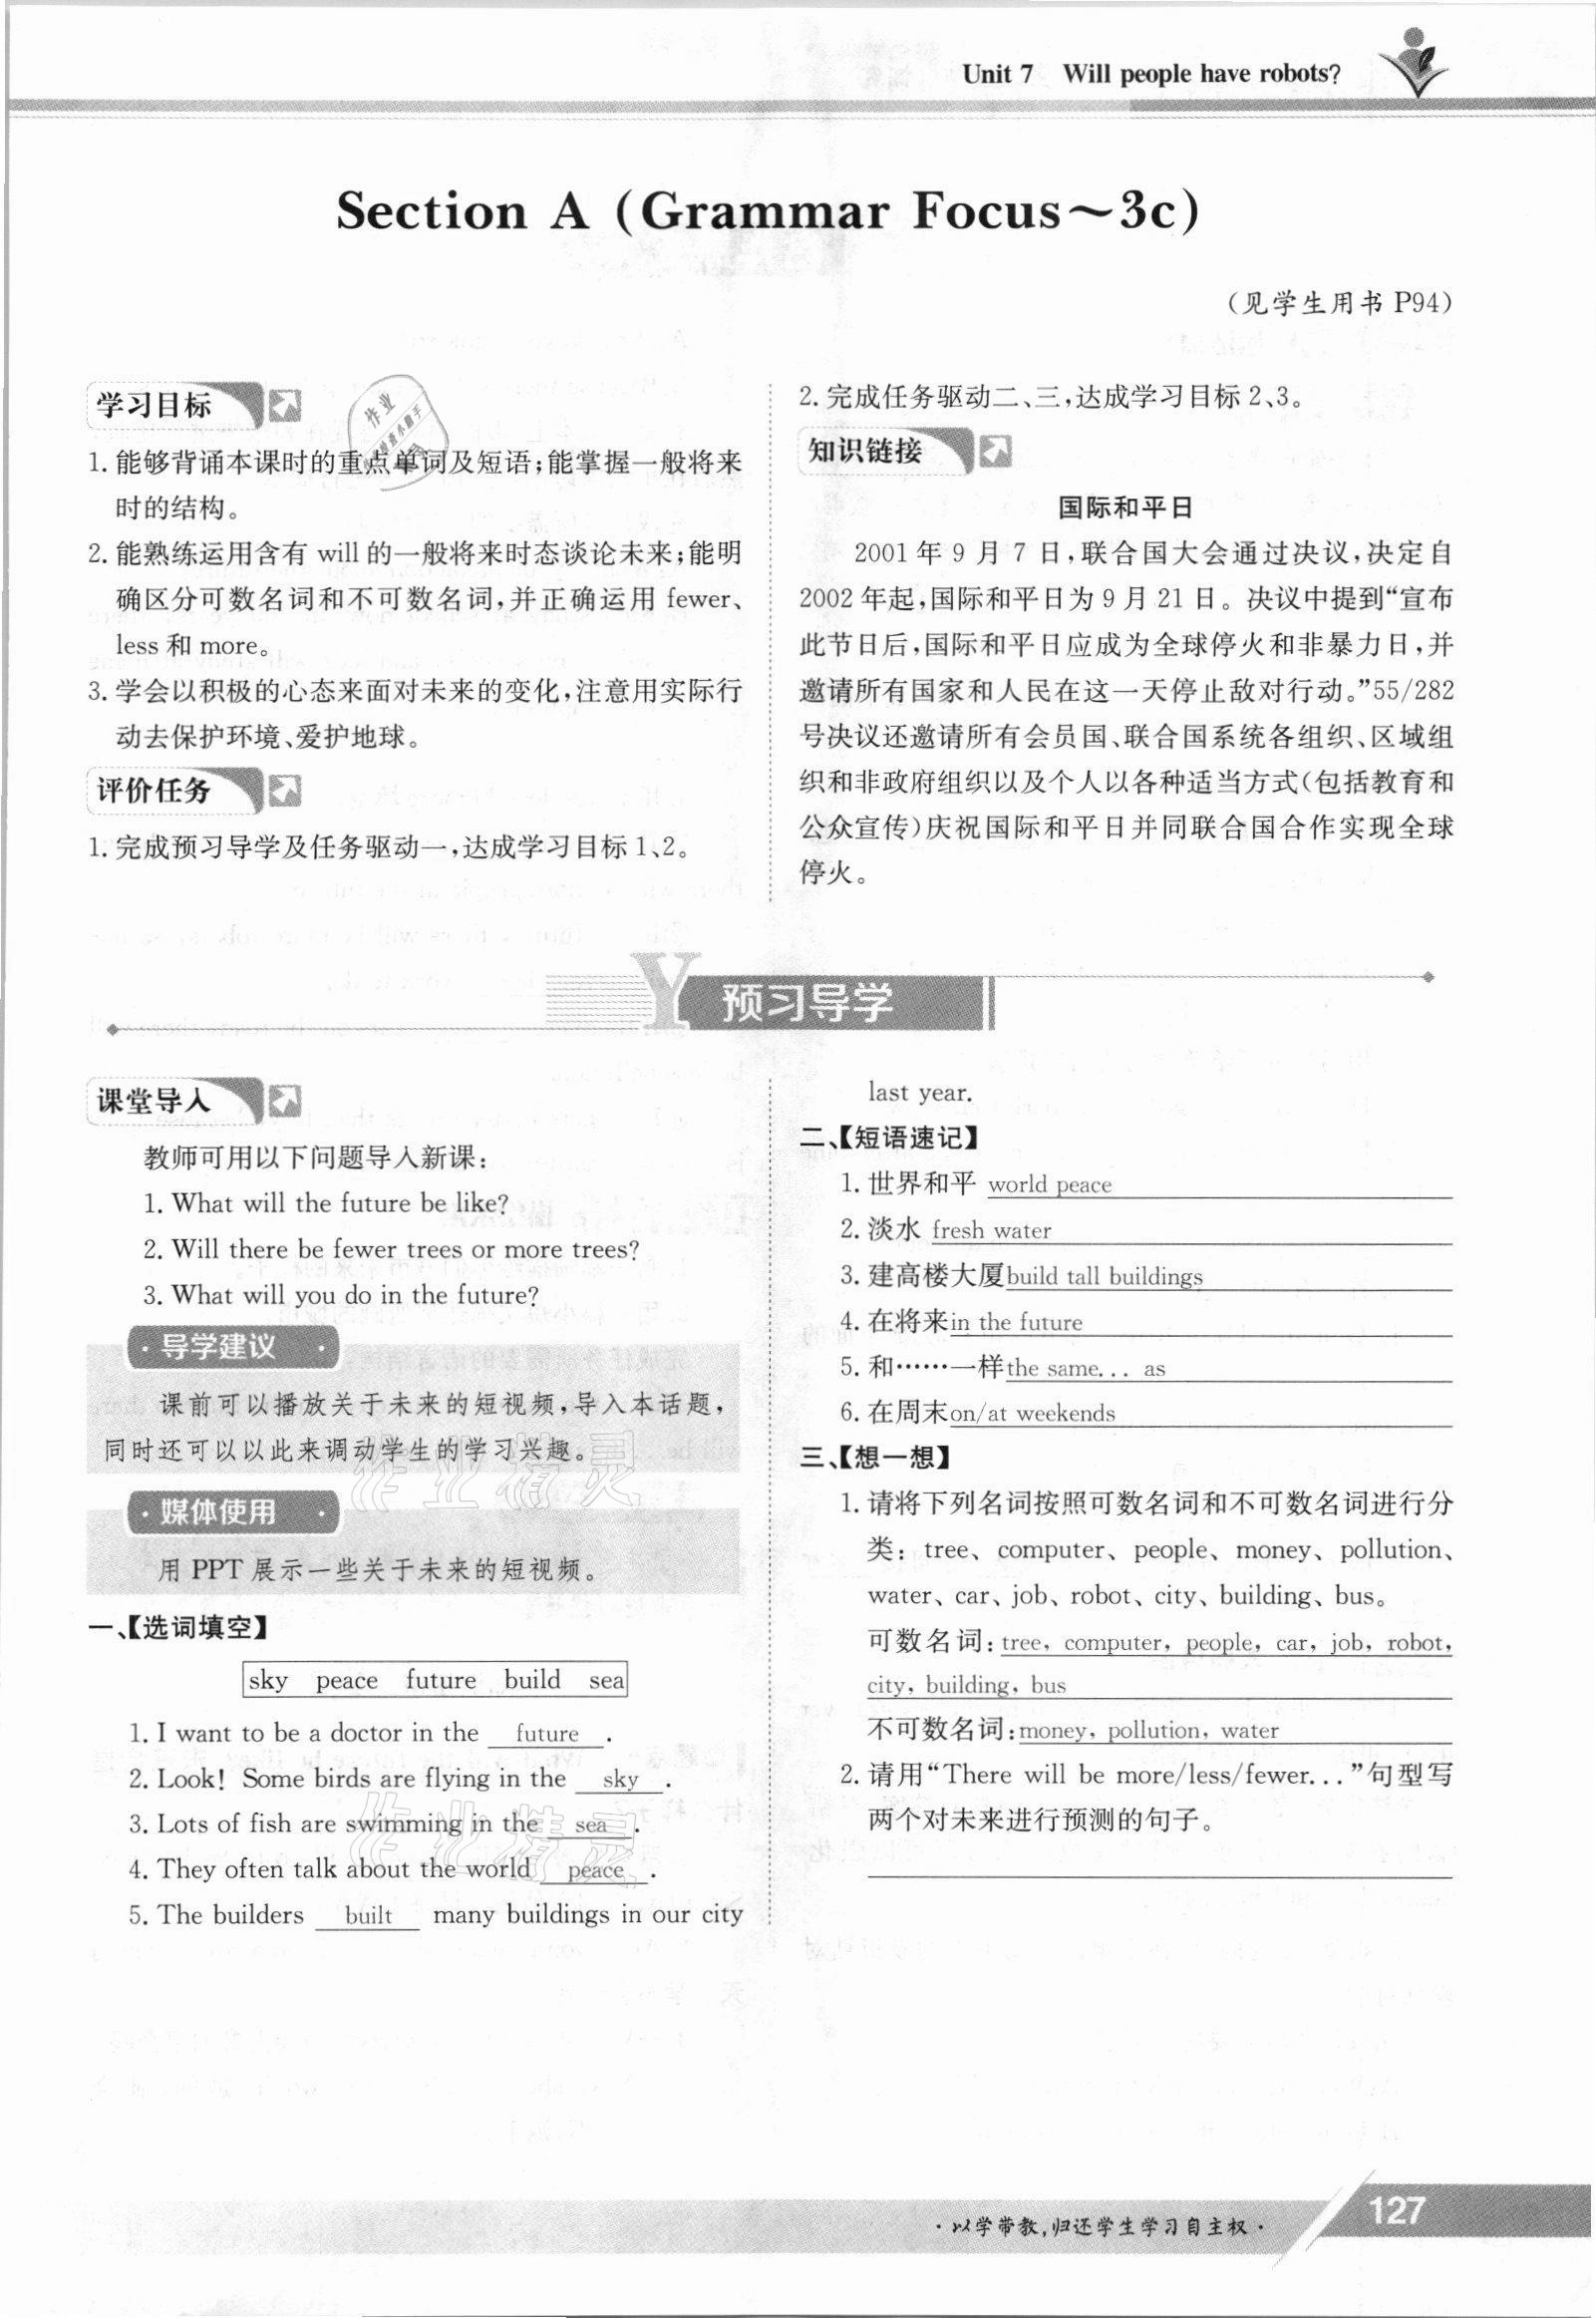 Unit 7 Will people have robots?
Section A (Grammar Focus～3c)
(见学生用书 P94)
学习目标
1. 能够背诵本课时的重点单词及短语;能掌握一般将来
时的结构。
2. 能熟练运用含有 will 的一般将来时态谈论未来;能明
确区分可数名词和不可数名词,并正确运用 fewer、
less 和 more。
3. 学会以积极的心态来面对未来的变化,注意用实际行
动去保护环境、爱护地球。
评价任务
1. 完成预习导学及任务驱动一,达成学习目标 1、2。
2. 完成任务驱动二、三,达成学习目标 2、3。
知识链接
国际和平日
2001 年 9 月 7 日,联合国大会通过决议,决定自
2002 年起,国际和平日为 9 月 21 日。决议中提到“宣布
此节日后,国际和平日应成为全球停火和非暴力日,并
邀请所有国家和人民在这一天停止敌对行动。”55/282
号决议还邀请所有会员国、联合国系统各组织、区域组
织和非政府组织以及个人以各种适当方式(包括教育和
公众宣传)庆祝国际和平日并同联合国合作实现全球
停火。
Y 预习导学
课堂导入
教师可用以下问题导入新课:
1. What will the future be like?
2. Will there be fewer trees or more trees?
3. What will you do in the future?
· 导学建议 ·
课前可以播放关于未来的短视频,导入本话题,
同时还可以以此来调动学生的学习兴趣。
· 媒体使用 ·
用 PPT 展示一些关于未来的短视频。
一、【选词填空】
sky peace future build sea
1. I want to be a doctor in the future .
2. Look! Some birds are flying in the sky .
3. Lots of fish are swimming in the sea .
4. They often talk about the world peace .
5. The builders built many buildings in our city
last year.
二、【短语速记】
1. 世界和平 world peace
2. 淡水 fresh water
3. 建高楼大厦 build tall buildings
4. 在将来 in the future
5. 和……一样 the same... as
6. 在周末 on/at weekends
三、【想一想】
1. 请将下列名词按照可数名词和不可数名词进行分
类: tree、computer、people、money、pollution、
water、car、job、robot、city、building、bus。
可数名词: tree, computer, people, car, job, robot,
city, building, bus
不可数名词: money, pollution, water
2. 请用“There will be more/less/fewer...”句型写
两个对未来进行预测的句子。
作业精灵
作业精灵
· 以学带教,归还学生学习自主权 ·
127